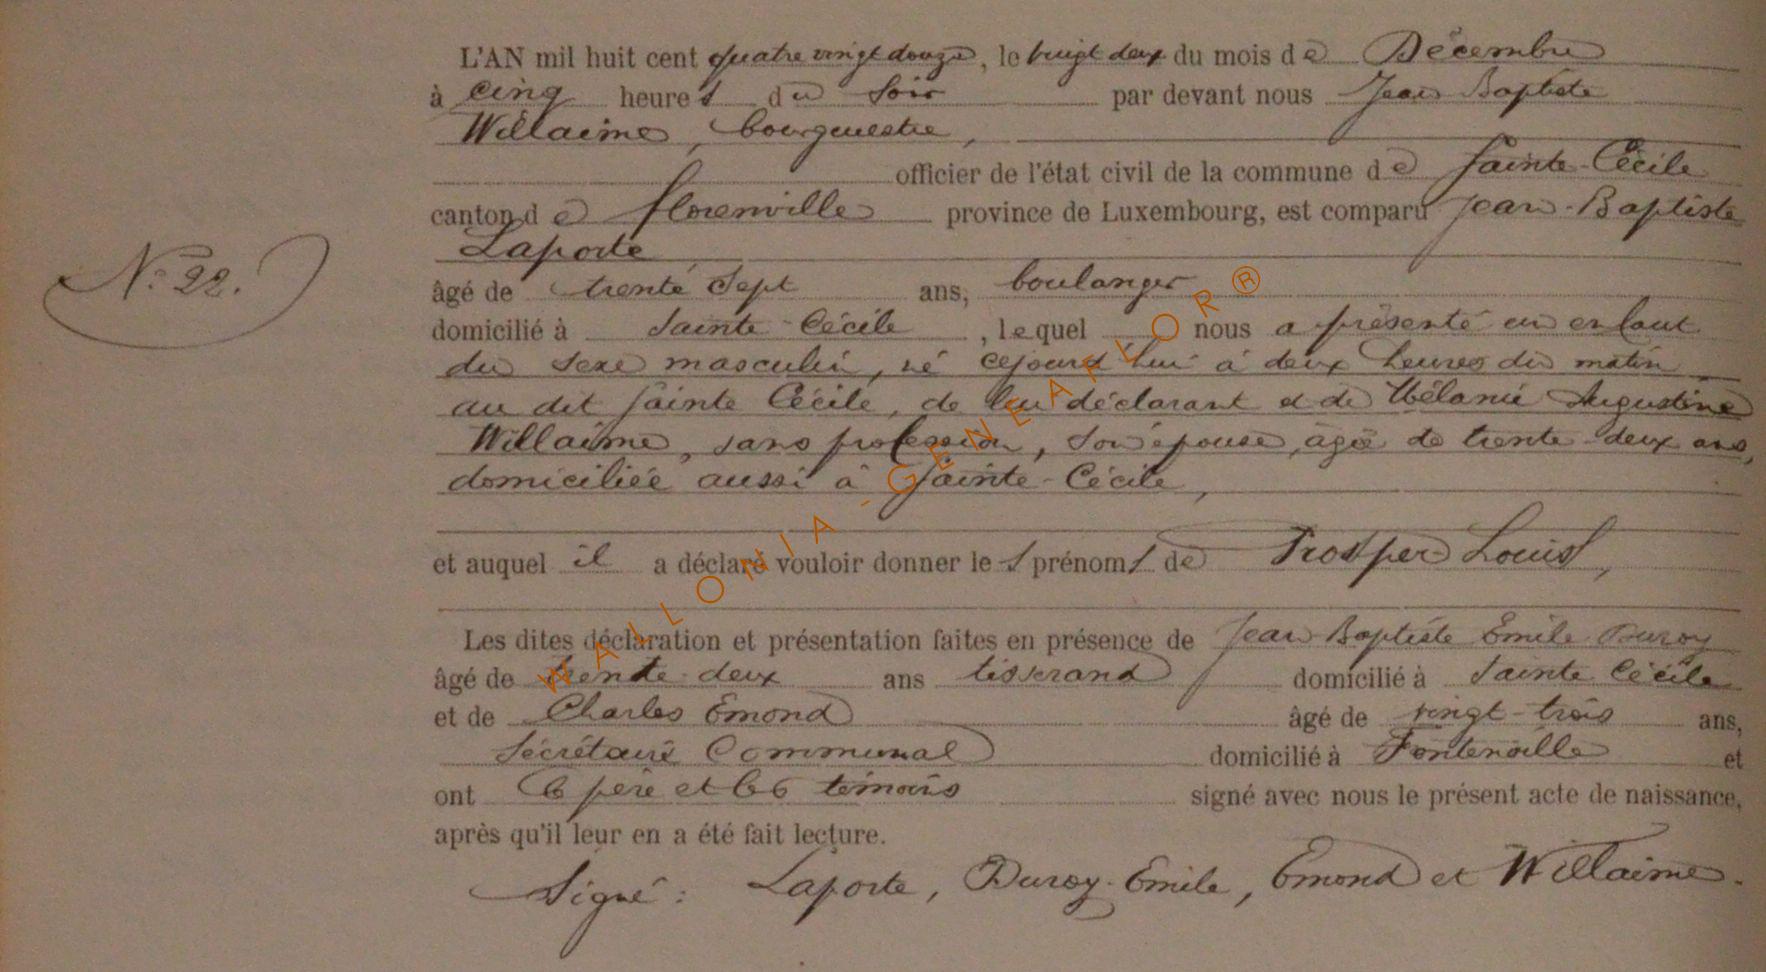 L'AN mil huit cent quatre vingt douze, le vingt deux du mois de Décembre
à cinq heures du soir par devant nous Jean Baptiste
Willaime, bourgmestre,
officier de l'état civil de la commune de Sainte-Cécile
canton de Florenville province de Luxembourg, est comparu Jean-Baptiste
Laporte
N° 22.
âgé de trente sept ans, boulanger
domicilié à Sainte-Cécile, lequel nous a présenté un enfant
du sexe masculin, né cejourd'hui à deux heures du matin
au dit Sainte Cécile, de lui déclarant et de Mélanie Augustine
Willaime, sans profession, son épouse, âgée de trente-deux ans,
domiciliée aussi à Sainte-Cécile,
et auquel il a déclaré vouloir donner les prénoms de Prosper Louis,
Les dites déclaration et présentation faites en présence de Jean Baptiste Emile Duroy
âgé de trente-deux ans tisserand domicilié à Sainte Cécile
et de Charles Emond âgé de vingt-trois ans,
Sécrétaire Communal domicilié à Fontenoille et
ont le père et les témoins signé avec nous le présent acte de naissance,
après qu'il leur en a été fait lecture.
Signé : Laporte, Duroy-Emile, Emond et Willaime.
WALLONIA-GENEAFLOR®